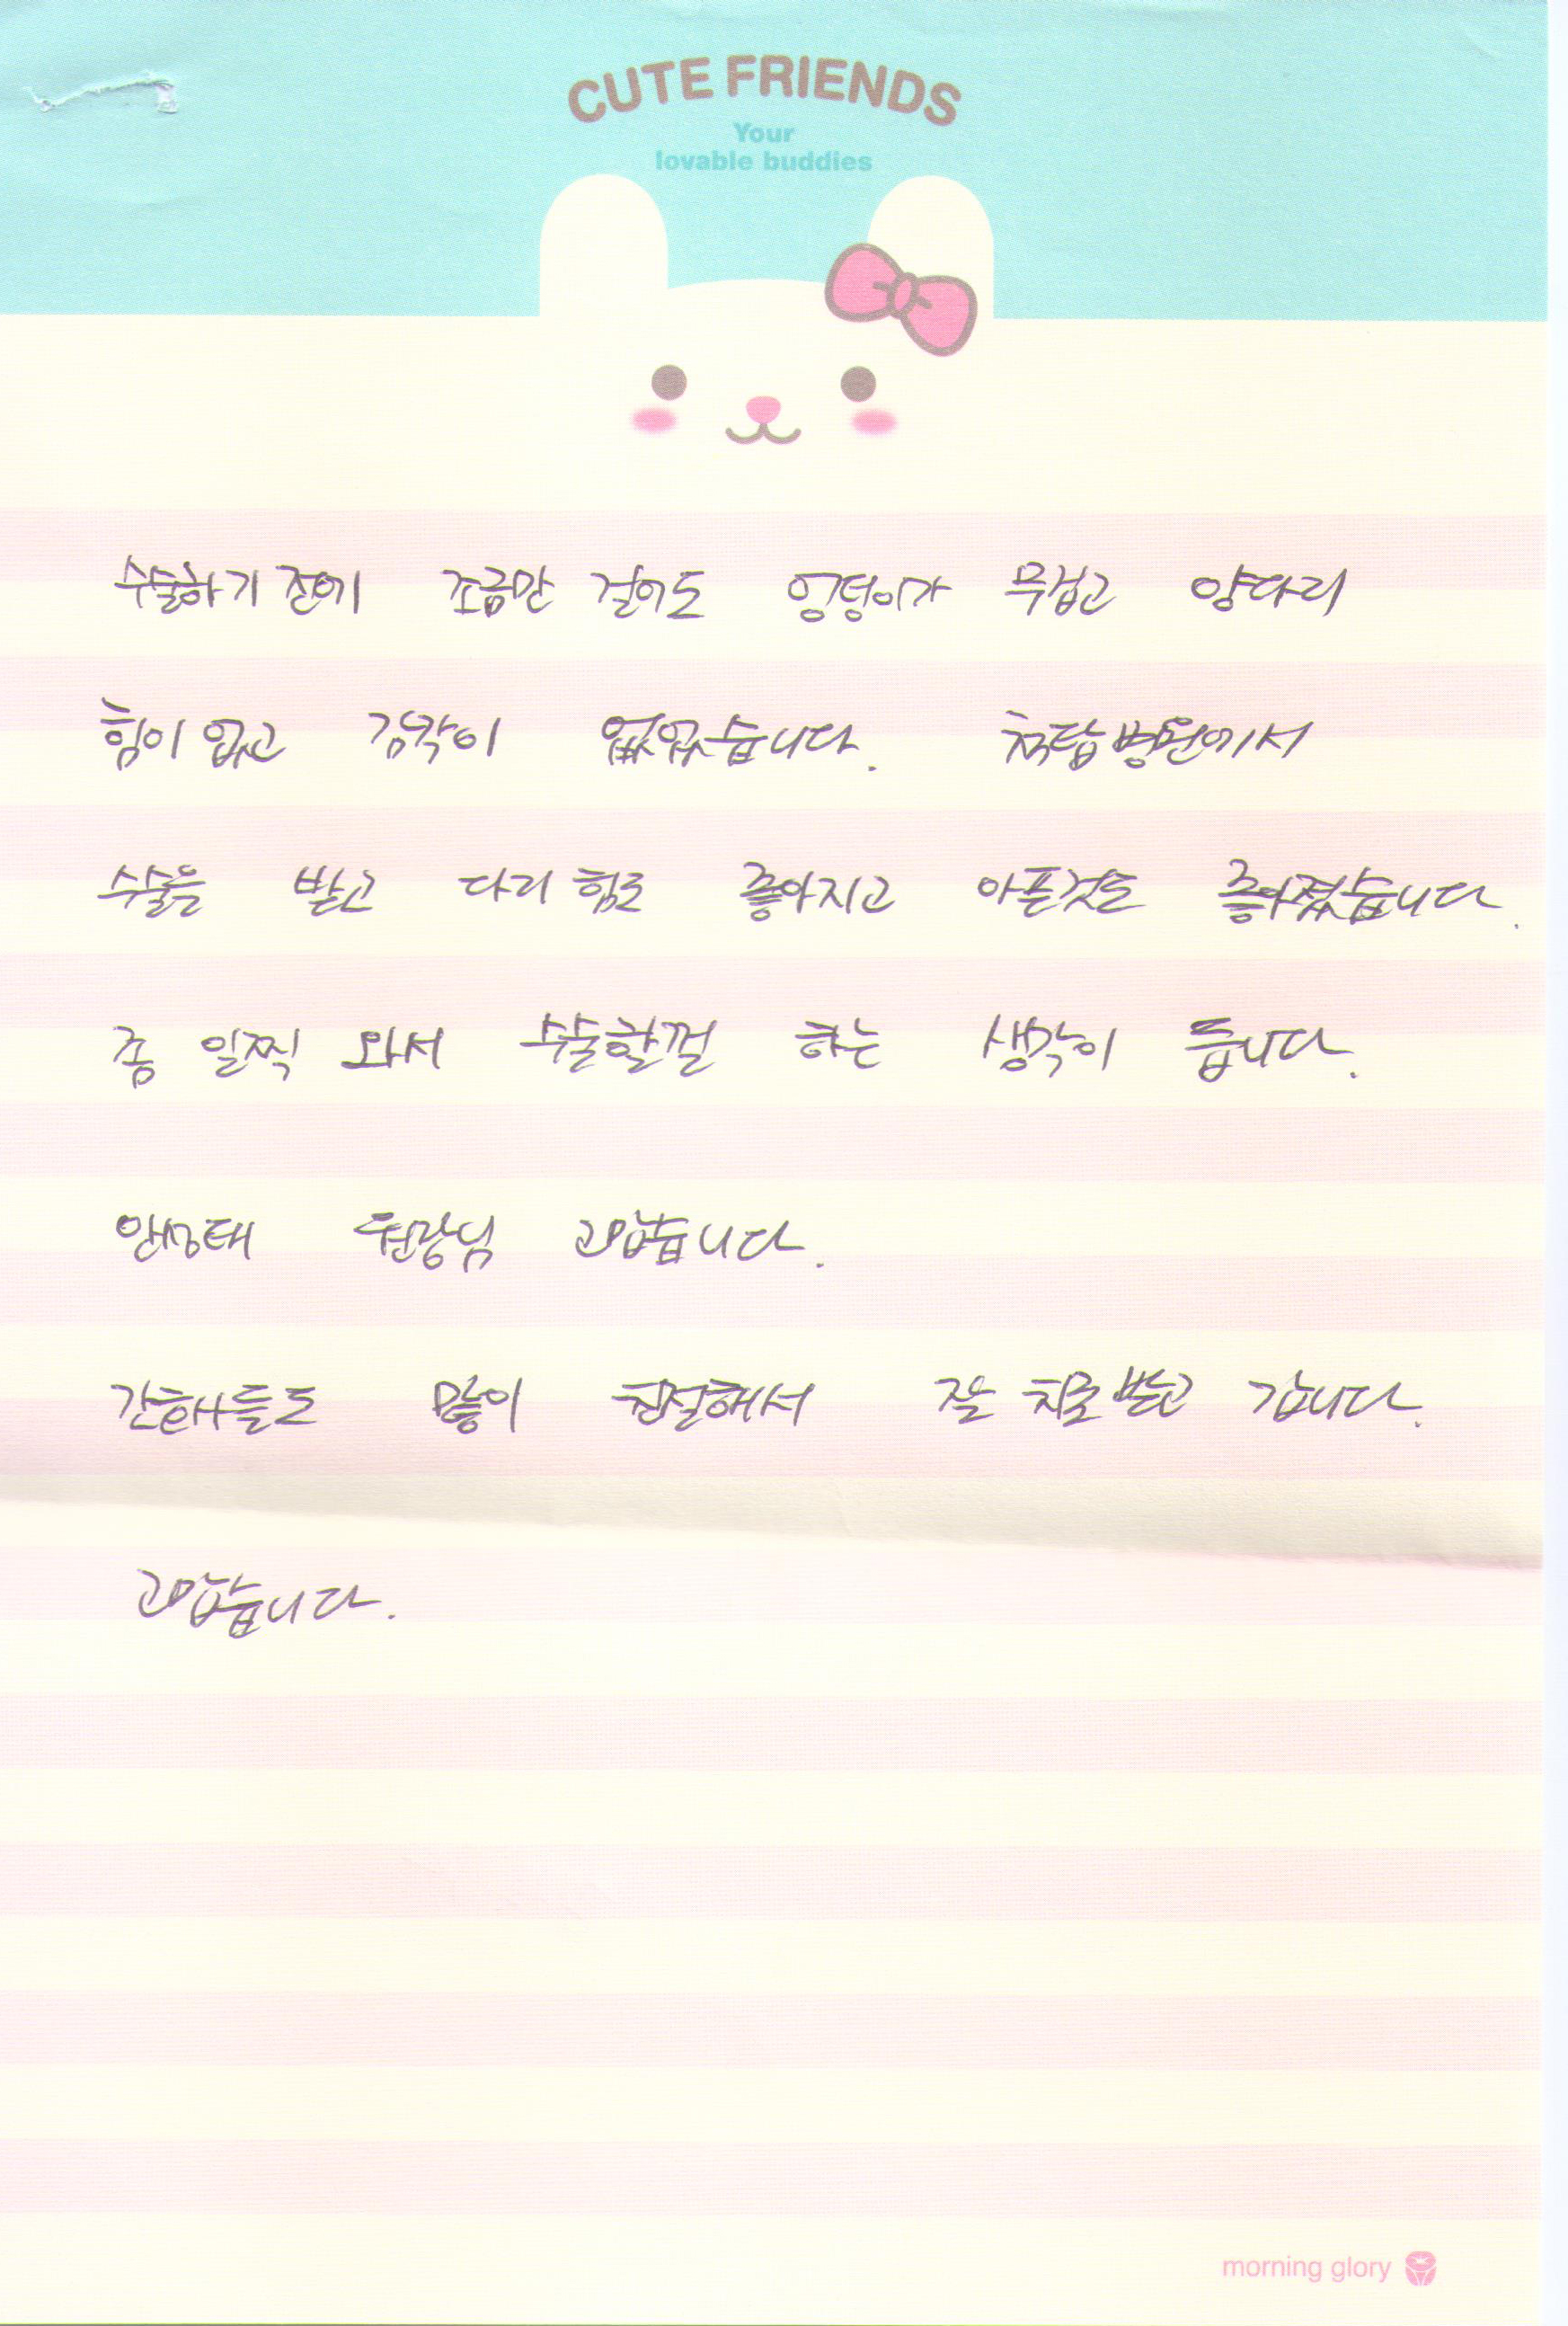 CUTE FRIENDS
Your
lovable buddies
수술하기 전에 조금만 걸어도 엉덩이가 무겁고 양다리
힘이 없고 감각이 없었습니다. 척탑병원에서
수술을 받고 다리 힘도 좋아지고 아픈것도 좋아졌습니다.
좀 일찍 와서 수술할껄 하는 생각이 듭니다.
안상태 원장님 고맙습니다.
많이 친절해서 잘 치료 받고 갑니다.
고맙습니다.
morning glory